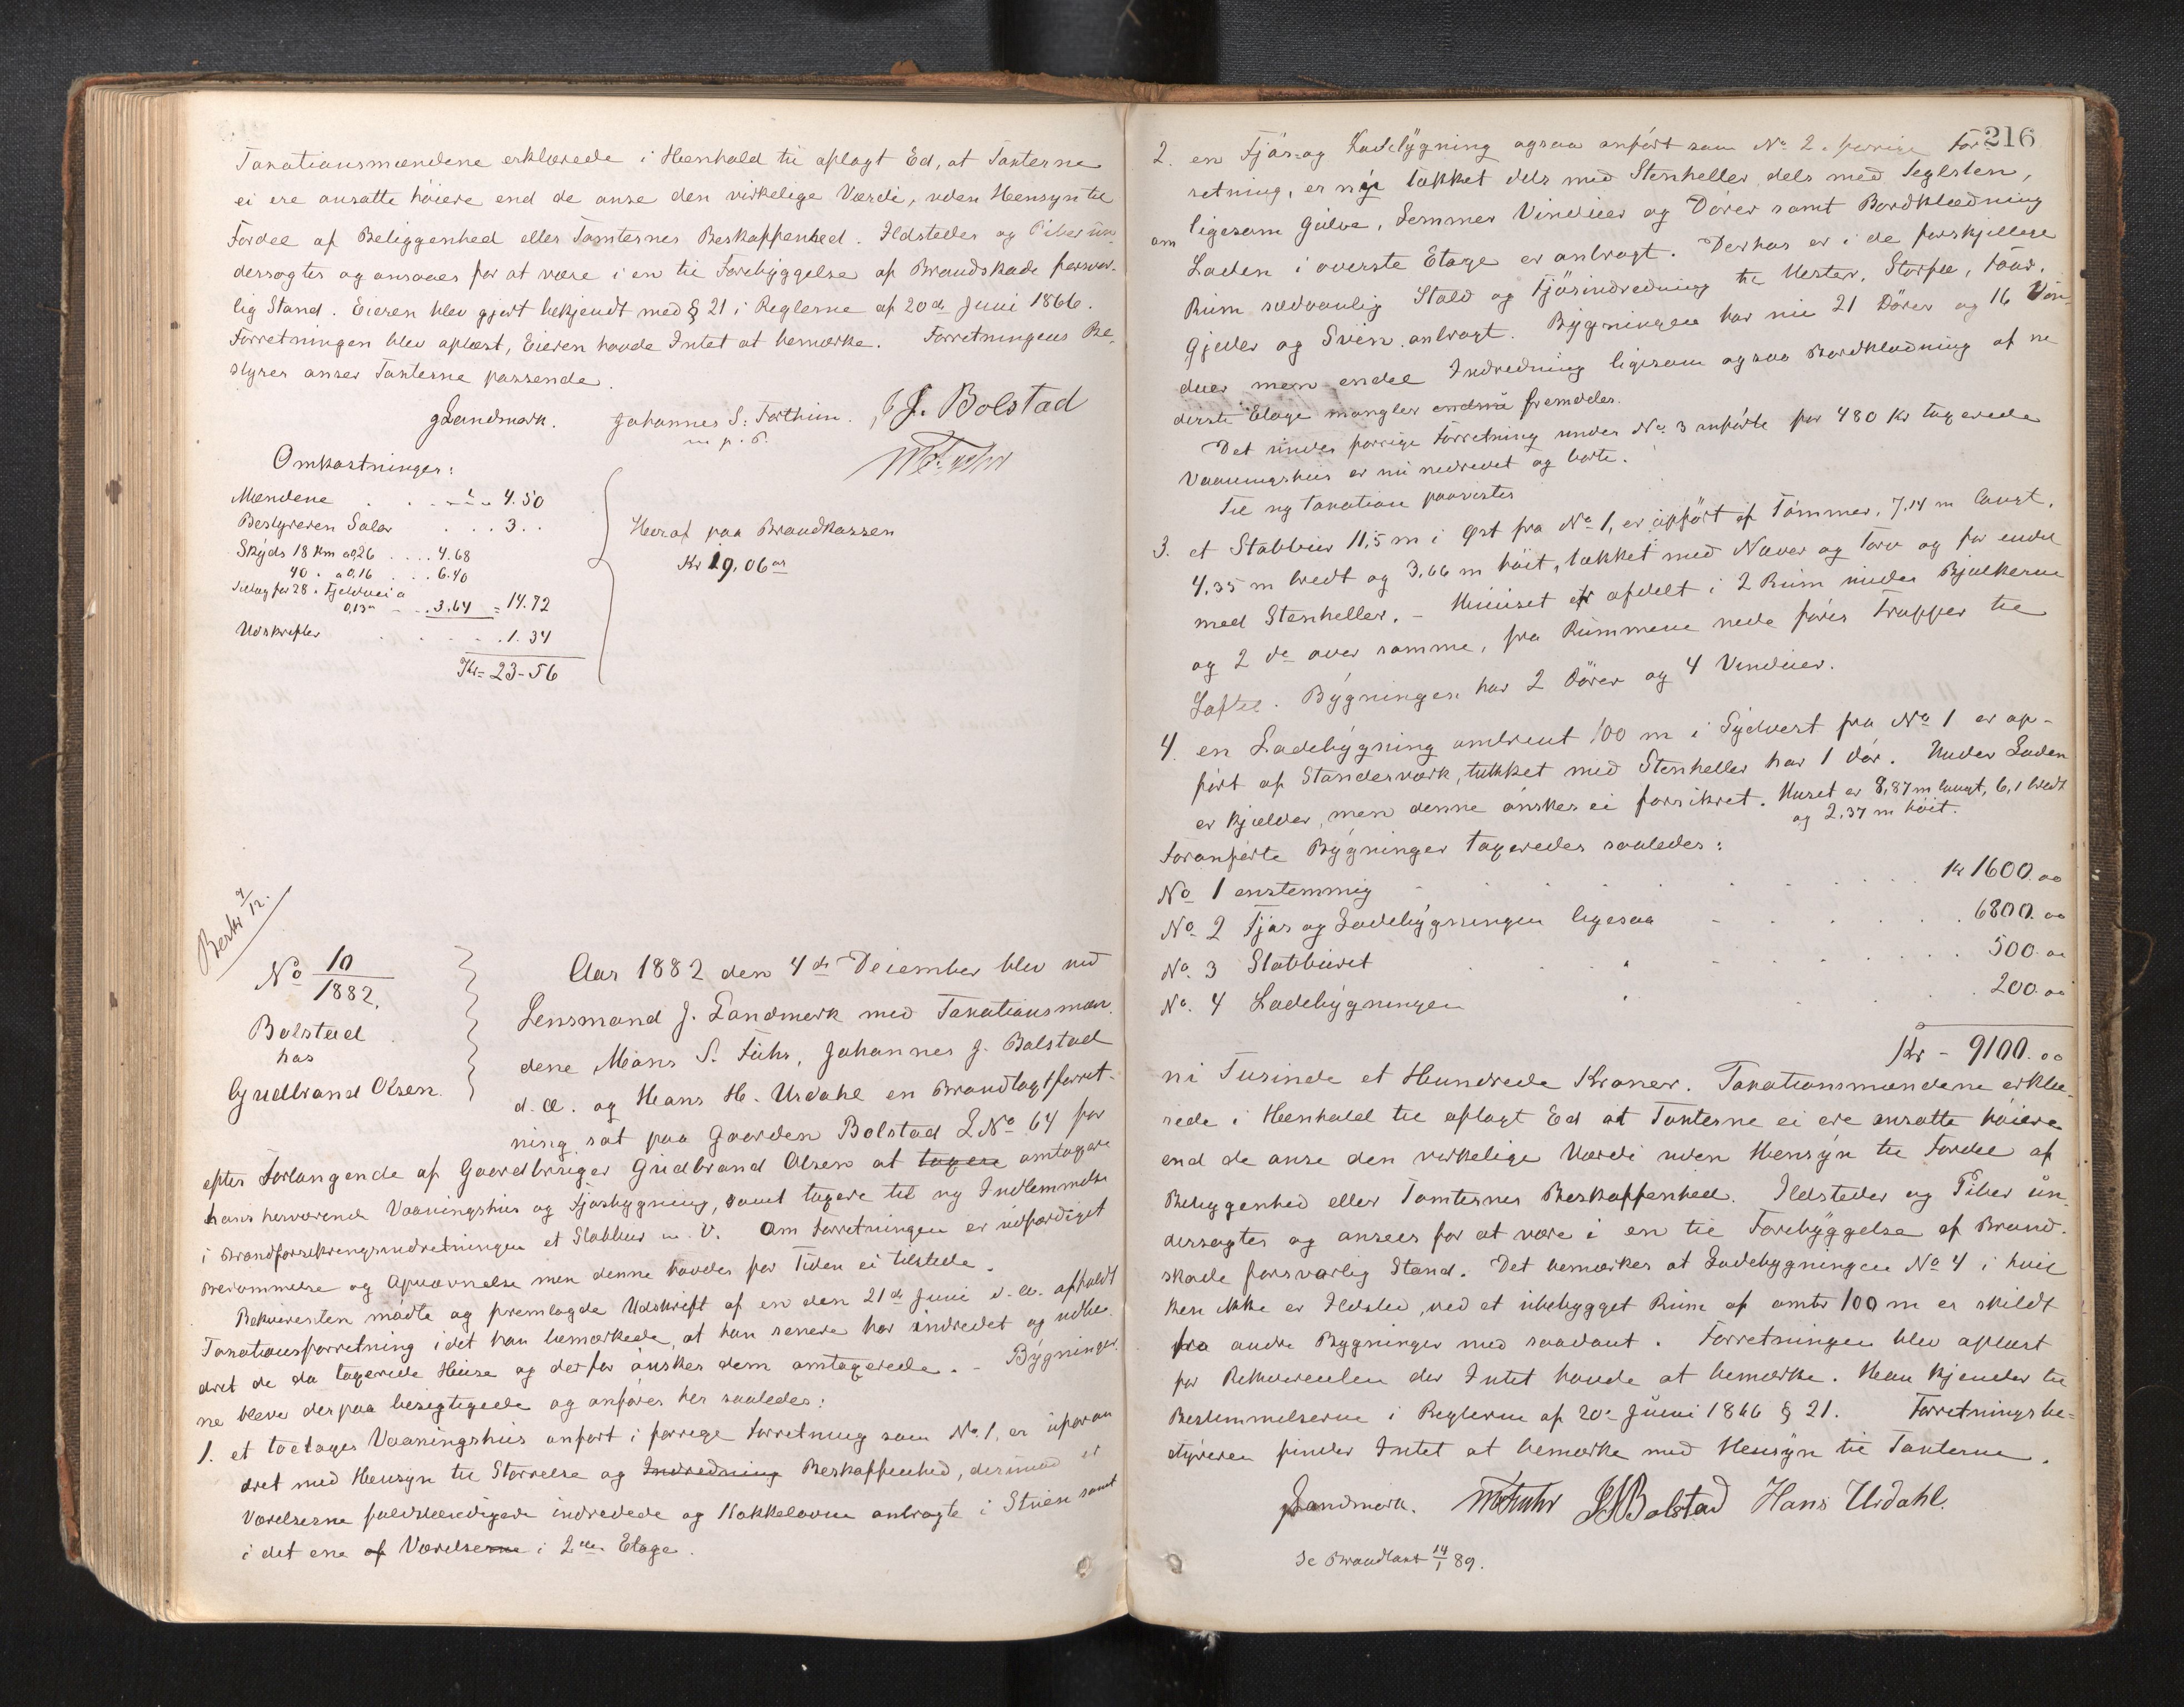 Taxationsmændene erklærede i Henhold til aflagt Ed, at Taxterne
ei ere ansatte höiere end de anse den virkelige Værdi, uden Hensyn til
Fordel af Beliggenhed eller Tomternes Beskaffenhed. Ildsteder og Piber un-
dersøgtes og ansaaes for at være i en til Forebyggelse af Brandskade forsvar-
lig Stand. Eieren blev gjort bekjendt med § 21 i Reglerne af 20de Juni 1866.
Forretningen blev oplæst, Eieren havde Intet at bemærke. Forretningens Be-
styrer anser Taxterne passende.
J Landmark. Johannes S. Forthun. J. Bolstad
m. p. P.
Omkostninger:
Mændene 4.50
Bestyreren Salær 3..
Skyds 18 Km a 0,26 4.68
40 " a 0,16 6.40
Tillæg for 28 " Fjeldvei a
0,13 3.64 = 14.72
Udskrifter 1.34
Kr = 23-56
Heraf paa Brandkassen
Kr 19,06
Berks 7/12.
No 10/1882.
Bolstad
hos
Gudbrand Olsen.
Aar 1882 den 4de December blev ved
Lensmand J. Landmark med Taxationsmæn-
dene Måns S. Fuhr, Johannes J. Bolstad
d. æ. og Hans H. Urdahl en Brandtaxtforret-
ning sat paa Gaarden Bolstad L No 64 for
efter Forlangende af Gaardbruger Gudbrand Olsen at taxere omtaxere
hans herværende Vaaningshus og Fjösbygning, samt taxere til ny Indlemmelse
i Brandforsikringsindretningen et Stabbur m. V. Om Forretningen er udfærdiget
Berammelse og Opnævnelse men denne havdes for Tiden ei tilstede.
Rekvirenten mödte og fremlagde Udskrift af en den 21de Juni d. A. afholdt
Taxationsforretning idet han bemærkede, at han senere har indredet og udbe-
dret de da taxerede Huse og derfor önsker dem omtaxerede. - Bygninger-
ne bleve derpaa besigtigede og anföres her saaledes:
1. et toetages Vaaningshus anfört i forrige Forretning som No 1, er uforan-
dret med Hensyn til Störrelse og Indredning Beskaffenhed, derimod er
Værelserne fuldstændigere indredede og Kakkelovne anbragte i Stuen samt
i det ene af Værelserne i 2den Etage.
216
2. en Fjös- og Ladebygning ogsaa anfört som No 2 i forrige For-
retning, er ny takket dels med Stenheller dels med Teglsten,
ligesom Gulve, Lemmer Vinduer og Dörer samt Bordklædning
om Laden i överste Etage er anbragt. Derhos er i de forskjellige
Rum sædvanlig Stald og Fjösindredning til Hester, Storfæ, Faar,
Gjeder og Svin anbragt. Bygningen har nu 21 Dörer og 16 Vin-
duer men endel Indredning ligesom ogsaa Bordklædning af ne-
derste Etage mangler endnu fremdeles.
Det under forrige Forretning under No 3 anförte for 480 Kr taxerede
Vaaningshus er nu nedrevet og borte.
Til ny Taxation paavistes
3. et Stabbur 11,5 m i Öst fra No 1, er opfört af Tömmer, 7,14 m langt,
4,35 m bredt og 3,66 m höit, takket med Næver og Torv og for endel
med Stenheller. - Huset er afdelt i 2 Rum under Bjælkerne
og 2 do over samme, fra Rummene nede föres Trapper til
Loftet. Bygningen har 2 Dörer og 4 Vinduer.
4. en Ladebygning omtrent 100 m i Sydvest fra No 1 er op-
fört af Standerværk, takket med Stenheller har 1 Dör. Under Laden
er Kjælder, men denne önskes ei forsikret. Huset er 8,87 m langt, 6,1 bredt
og 2,37 m höit.
Foranförte Bygninger taxeredes saaledes:
No 1 enstemmig Kr 1600.00
No 2 Fjös og Ladebygningen ligesaa 6800.00
No. 3 Stabburet 500.00
No. 4 Ladebygningen 200.00
Kr - 9100.00
ni Tusinde et Hundrede Kroner. Taxationsmændene erklæ-
rede i Henhold til aflagt Ed at Taxterne ei ere ansatte höiere
end de anse den virkelige Værdi uden Hensyn til Fordel af
Beliggenhed eller Tomternes Beskaffenhed. Ildsteder og Piber un-
dersögtes og ansees for at være i en til Forebyggelse af Brand-
skade forsvarlig Stand. Det bemærkes at Ladebygningen No 4 i hvil
ken ikke er Ildsted, ved et ubebygget Rum af omtr 100 m er skildt
fra andre Bygninger med saadant. Forretningen blev oplæst
for Rekvirenten der Intet havde at bemærke. Han kjender til
Bestemmelserne i Reglerne af 20de Juni 1866 § 21. Forretningsbe-
styreren finder Intet at bemærke med Hensyn til Taxterne.
J Landmark. MS Fuhr JJ Bolstad Hans Urdahl.
Se Brandtaxt 14/1 89.